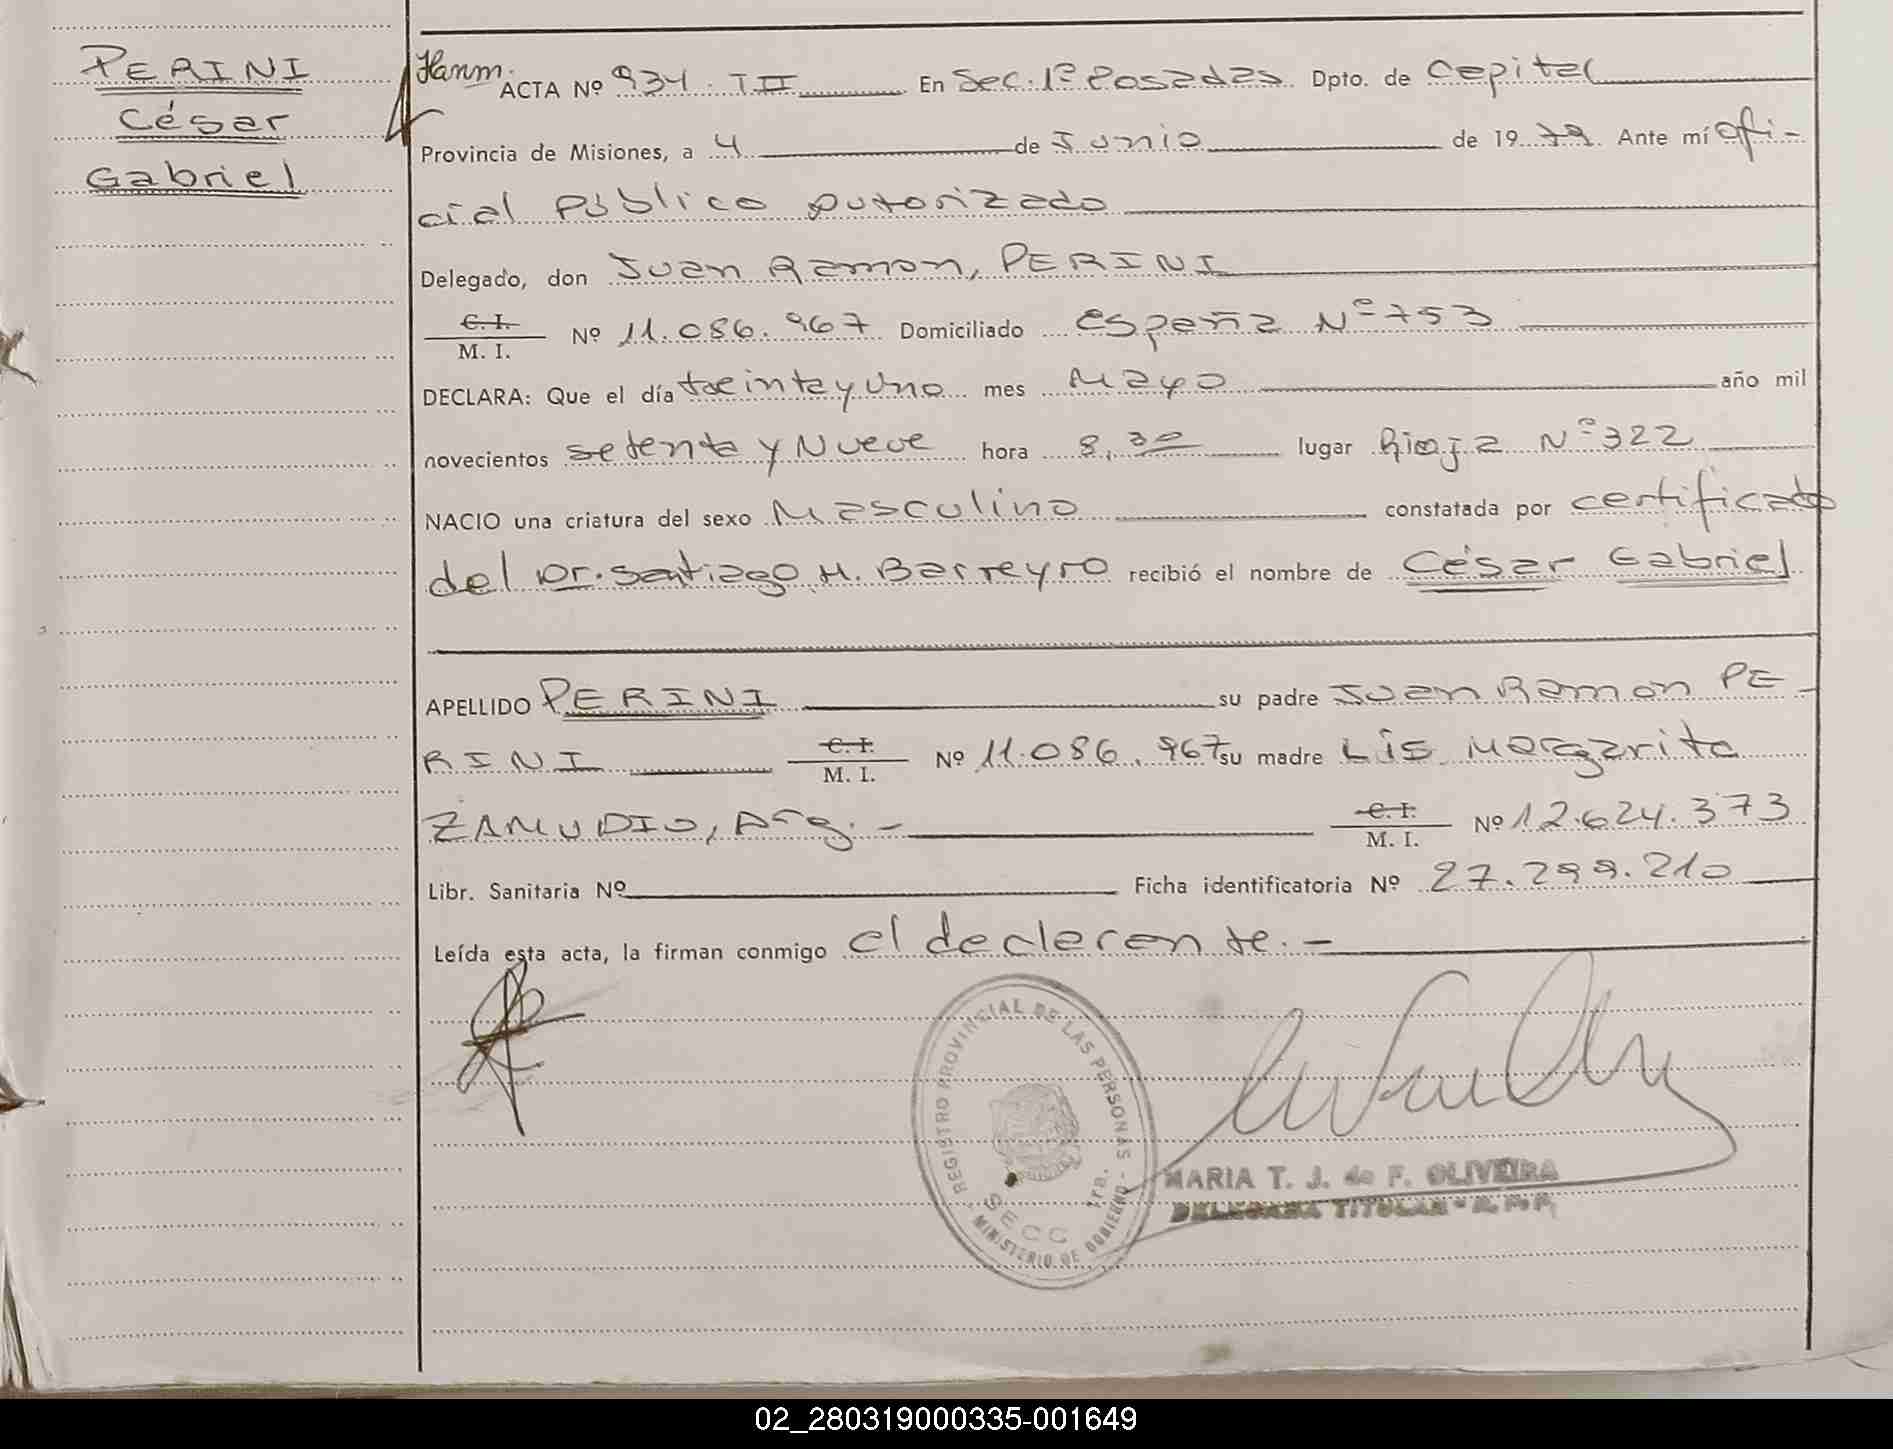 PERINI
César
Gabriel
ACTA Nº 934. TII En Sec. 1º Posadas Dpto. de Capital
Provincia de Misiones, a 4 de Junio de 1979. Ante mí ofi-
cial Público autorizado
Delegado, don Juan Ramon, PERINI
C. I.
M. I.
Nº 11.086.967 Domiciliado españa Nº 753
DECLARA: Que el día treinta y Uno mes Mayo año mil
novecientos setenta y Nueve hora 8,30 lugar Rioja Nº 322
NACIO una criatura del sexo Masculino constatada por certificado
del Dr. Santiago H. Barreyro recibió el nombre de César Gabriel
APELLIDO PERINI su padre Juan Ramon PE-
RINI C. I. M. I. Nº 11.086.967 su madre Lis Margarita
ZAMUDIO, Arg. - C. I. M. I. Nº 12.624.373
Libr. Sanitaria Nº Ficha identificatoria Nº 27.299.210
Leída esta acta, la firman conmigo el declarante. -
REGISTRO PROVINCIAL DE LAS PERSONAS - MINISTERIO DE GOBIERNO -
SECC 1ra.
MARIA T. J. de F. OLIVEIRA
DELEGADA TITULAR - R. P. P.
02_280319000335-001649